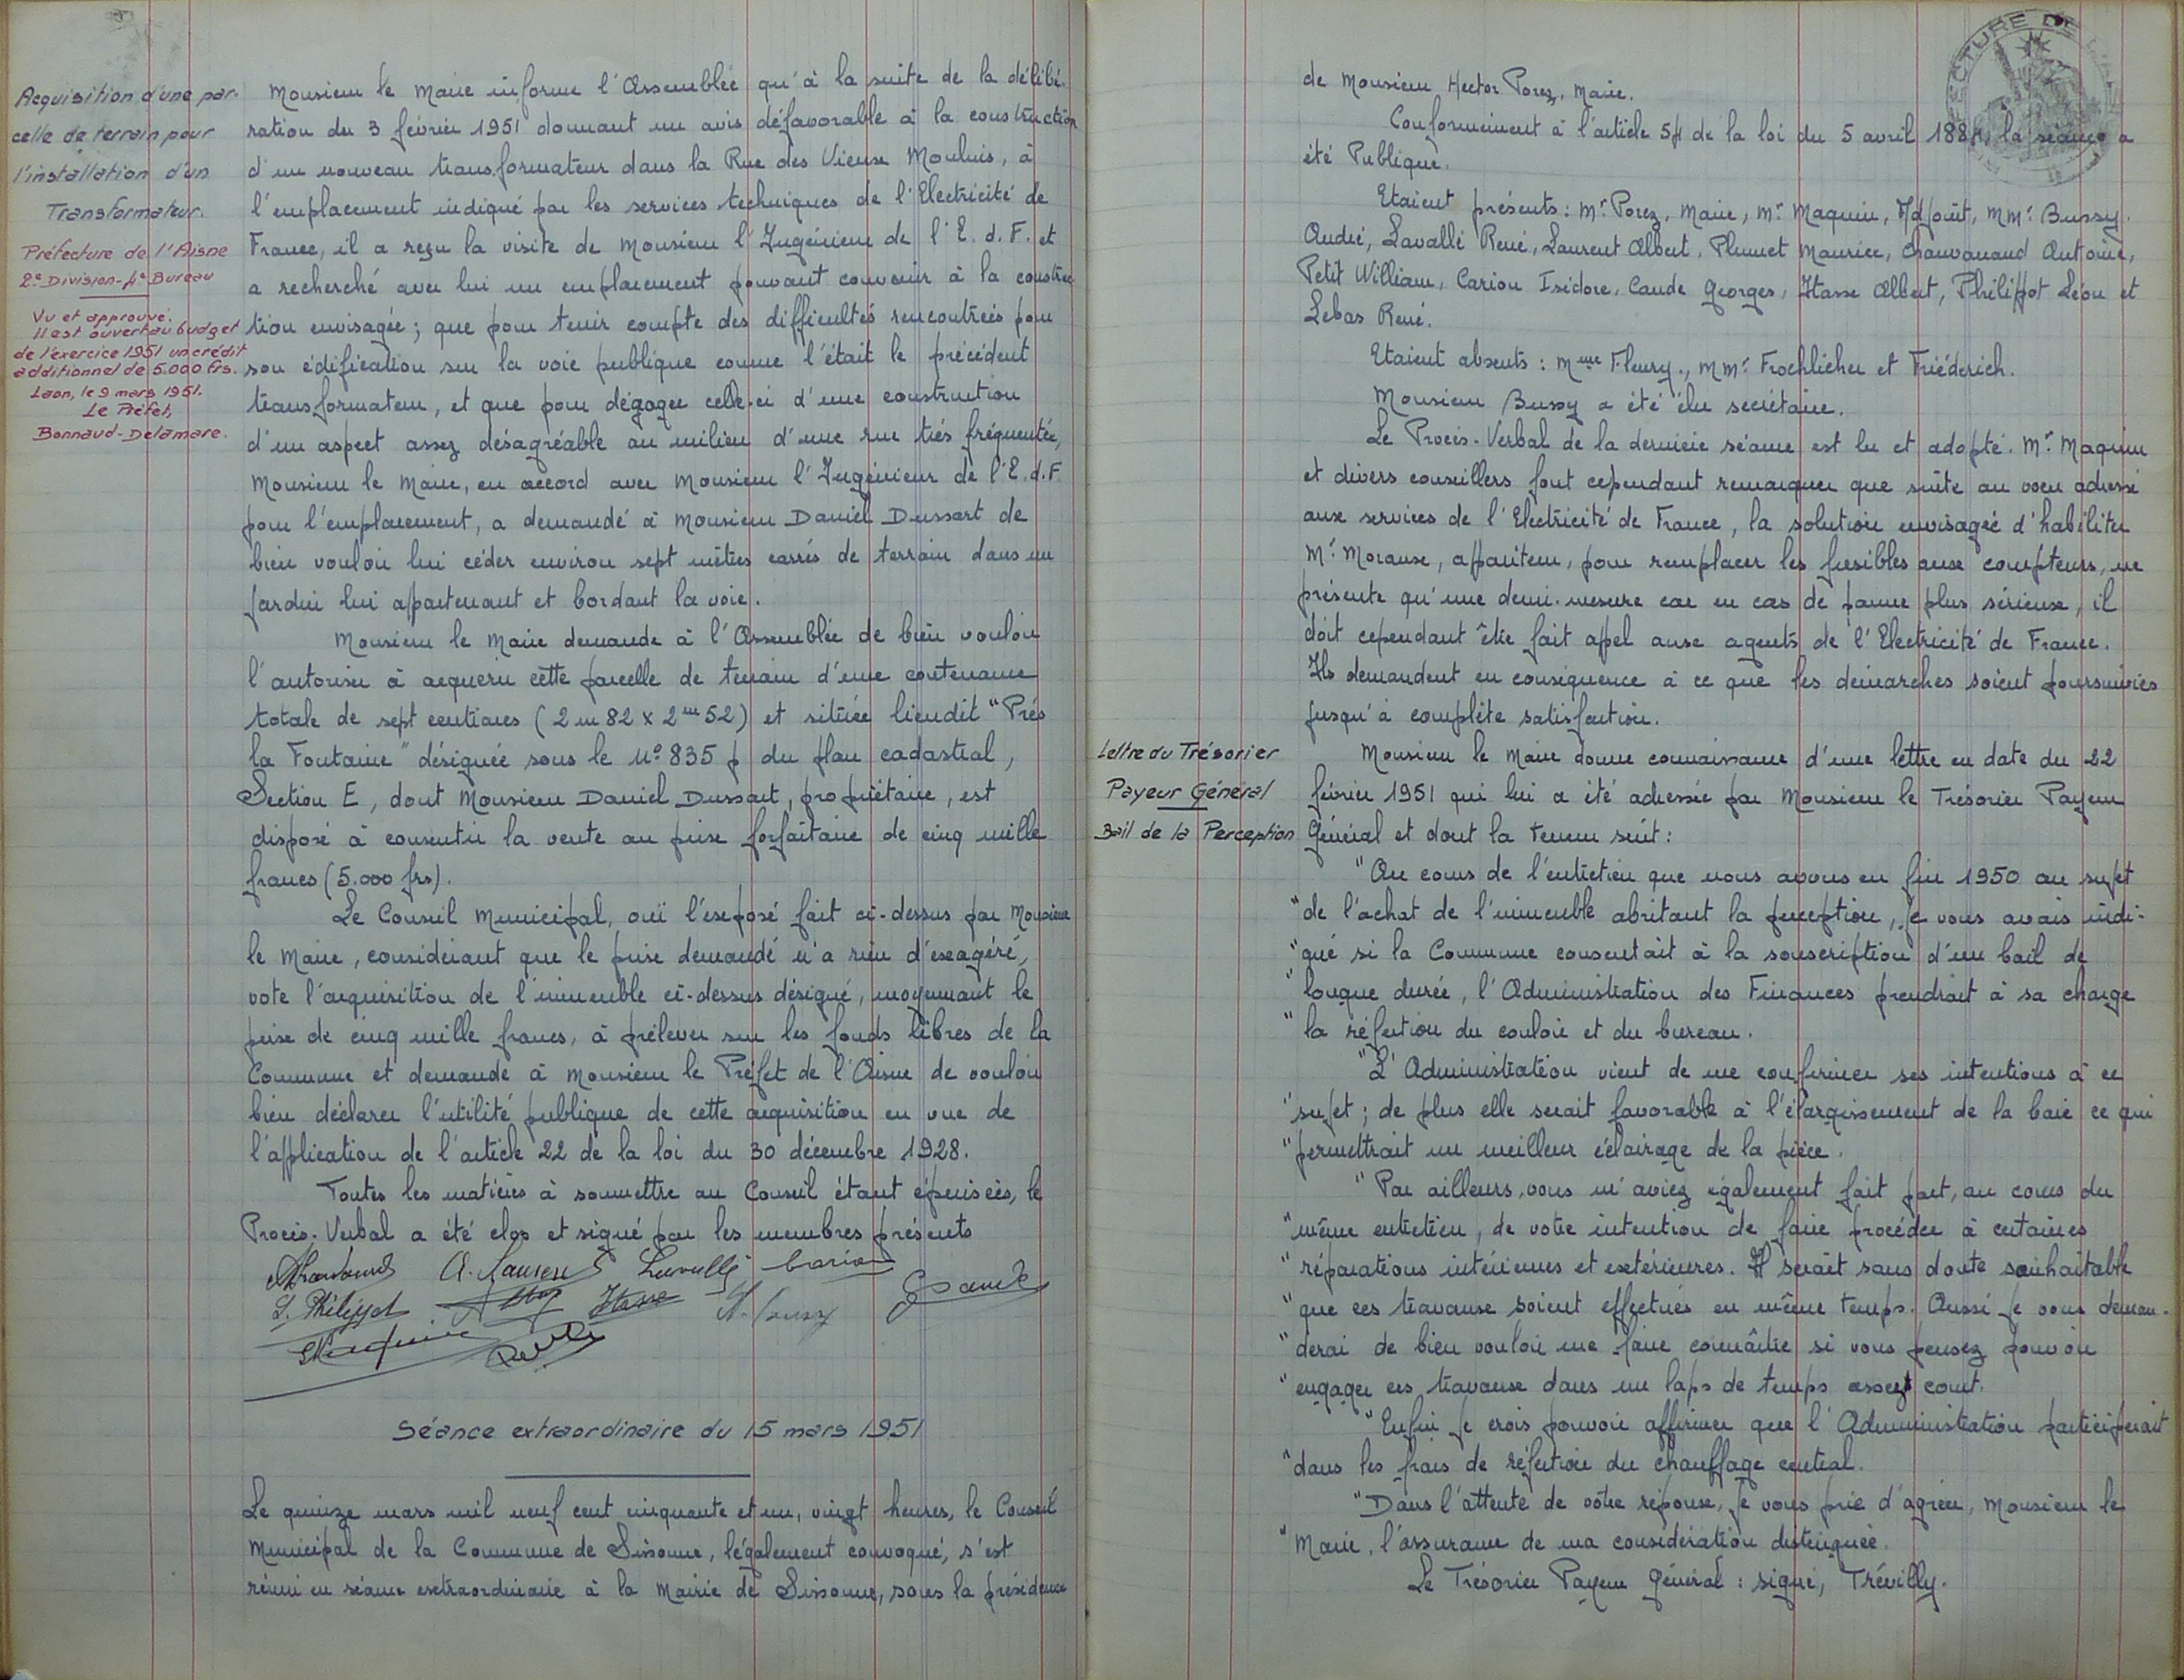 Acquisition d'une par-
celle de terrain pour
l'installation d'un
Transformateur.
Préfecture de l'Aisne
2e Division-4e Bureau
Vu et approuvé.
Il est ouvert au budget
de l'exercice 1951 un crédit
additionnel de 5.000 frs.
Laon, le 9 mars 1951.
Le Préfet,
Bonnaud-Delamare.
Monsieur le Maire informe l'Assemblée qu'à la suite de la délibé-
ration du 3 février 1951 donnant un avis défavorable à la construction
d'un nouveau transformateur dans la Rue des Vieux Moulins, à
l'emplacement indiqué par les services techniques de l'Electricité de
France, il a reçu la visite de Monsieur l'Ingénieur de l'E.d.F. et
a recherché avec lui un emplacement pouvant convenir à la construc-
tion envisagée; que pour tenir compte des difficultés rencontrées pour
son édification sur la voie publique comme l'était le précédent
transformateur, et que pour dégager celle-ci d'une construction
d'un aspect assez désagréable au milieu d'une rue très fréquentée,
Monsieur le Maire, en accord avec Monsieur l'Ingénieur de l'E.d.F.
pour l'emplacement, a demandé à Monsieur Daniel Dussart de
bien vouloir lui céder environ sept mètres carrés de terrain dans un
jardin lui appartenant et bordant la voie.
Monsieur le Maire demande à l'Assemblée de bien vouloir
l'autoriser à acquérir cette parcelle de terrain d'une contenance
totale de sept centiares (2m82 x 2m52) et située lieudit "Près
la Fontaine" désignée sous le N° 835 p du plan cadastral,
Section E, dont Monsieur Daniel Dussart, propriétaire, est
disposé à consentir la vente au prix forfaitaire de cinq mille
francs (5.000 frs).
Le Conseil Municipal, ouï l'exposé fait ci-dessus par Monsieur
le Maire, considérant que le prix demandé n'a rien d'exagéré,
vote l'acquisition de l'immeuble ci-dessus désigné, moyennant le
prix de cinq mille francs, à prélever sur les fonds libres de la
Commune et demande à Monsieur le Préfet de l'Aisne de vouloir
bien déclarer l'utilité publique de cette acquisition en vue de
l'application de l'article 22 de la loi du 30 décembre 1928.
Toutes les matières à soumettre au Conseil étant épuisées, le
Procès-Verbal a été clos et signé par les membres présents
A. Laurent Lavallé Cariou
L. Philippot Hasse
Maquin
Séance extraordinaire du 15 mars 1951
Le quinze mars mil neuf cent cinquante et un, vingt heures, le Conseil
Municipal de la Commune de Sissonne, légalement convoqué, s'est
réuni en séance extraordinaire à la Mairie de Sissonne, sous la présidence
de Monsieur Hector Porez, Maire.
Conformément à l'article 54 de la loi du 5 avril 1884, la séance a
été Publique.
Etaient présents: Mr Porez, Maire, Mr Maquin, Adjoint, MMr Bussy
André, Lavallé René, Laurent Albert, Plumet Maurice, Chauvanaud Antoine,
Petit William, Cariou Isidore, Caude Georges, Hasse Albert, Philippot Léon et
Lebas René.
Etaient absents: Mme Fleury., MMr Frochlicher et Friéderich.
Monsieur Bussy a été élu secrétaire.
Le Procès-Verbal de la dernière séance est lu et adopté. Mr Maquin
et divers conseillers font cependant remarquer que suite au voeu adressé
aux services de l'Electricité de France, la solution envisagée d'habiliter
Mr Moraux, appariteur, pour remplacer les fusibles aux compteurs, ne
présente qu'une demi-mesure car en cas de panne plus sérieuse, il
doit cependant être fait apel aux agents de l'Electricité de France.
Ils demandent en conséquence à ce que les démarches soient poursuivies
jusqu'à complète satisfaction.
Lettre du Trésorier
Payeur Général
Bail de la Perception
Monsieur le Maire donne connaissance d'une lettre en date du 22
février 1951 qui lui a été adressée par Monsieur le Trésorier Payeur
Général et dont la teneur suit:
"Au cours de l'entretien que nous avons eu fin 1950 au sujet
"de l'achat de l'immeuble abritant la perception, je vous avais indi-
"qué si la Commune consentait à la souscription d'un bail de
"longue durée, l'Administration des Finances prendrait à sa charge
"la réfection du couloir et du bureau.
"L'Administration vient de me confirmer ses intentions à ce
"sujet; de plus elle serait favorable à l'élargissement de la baie ce qui
"permettrait un meilleur éclairage de la pièce.
"Par ailleurs, vous m'aviez également fait part, au cours du
"même entretien, de votre intention de faire procéder à certaines
"réparations intérieures et extérieures. Il serait sans doute souhaitable
"que ces travaux soient effectués en même temps. Aussi je vous deman-
"derai de bien vouloir me faire connaître si vous pensez pouvoir
"engager ces travaux dans un laps de temps assez court.
"Enfin je crois pouvoir affirmer que l'Administration participerait
"dans les frais de réfection du chauffage central.
"Dans l'attente de votre réponse, je vous prie d'agréer, Monsieur le
"Maire, l'assurance de ma considération distinguée.
Le Trésorier Payeur Général: signé, Trévilly.